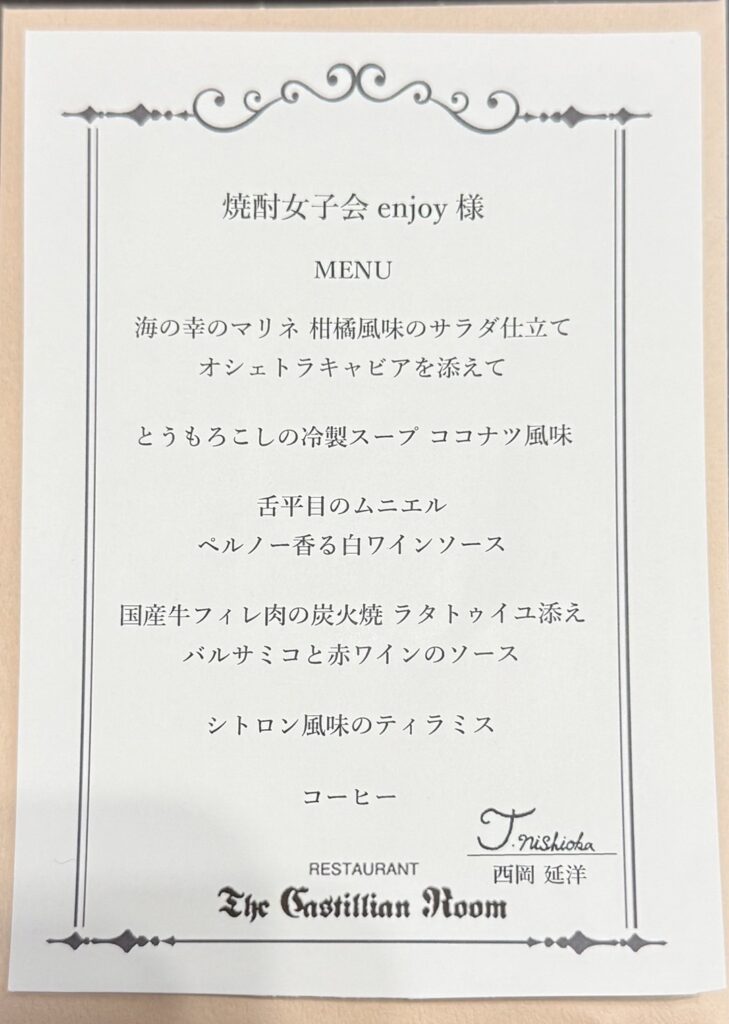 焼酎女子会 enjoy 様
MENU
海の幸のマリネ 柑橘風味のサラダ仕立て
オシェトラキャビアを添えて
とうもろこしの冷製スープ ココナツ風味
舌平目のムニエル
ペルノー香る白ワインソース
国産牛フィレ肉の炭火焼 ラタトゥイユ添え
バルサミコと赤ワインのソース
シトロン風味のティラミス
コーヒー
T. nishioka
西岡 延洋
RESTAURANT
The Castillian Room